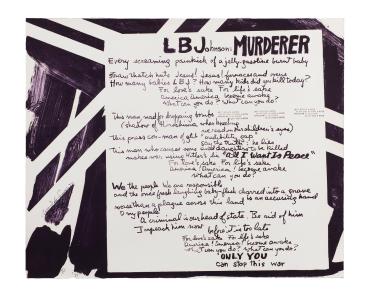 LBJohnson: MURDERER
Every screaming pain kick of a jelly-gasoline burnt baby
that's hate Jesus! Jesus! furnaces and ovens
How many babies LBJ? How many kids did we kill today?
For love's sake For life's sake
America America become awake
What can you do? What can you do?
This man mad for dropping bombs
(shadow of Hiroshima who's howling
we read in his children's eyes)
This press con-man of glib credibility gap
say the truth: he lies
This man who causes some and daughters to be killed
makes war using Hitler's lie "All I Want Is Peace"
For love's sake For life's sake
America! America! become awake
what can you do?
We the people We are responsible
and the ones fresh laughing baby-flesh charred into a grave
worse than a plague across this land is an accusing hand
O my people!
A criminal is our head of state. Be rid of him
Impeach him now before it's too late
For love's sake For life's sake
America! America! become awake
What can you do? What can you do?
"ONLY YOU
can stop this war